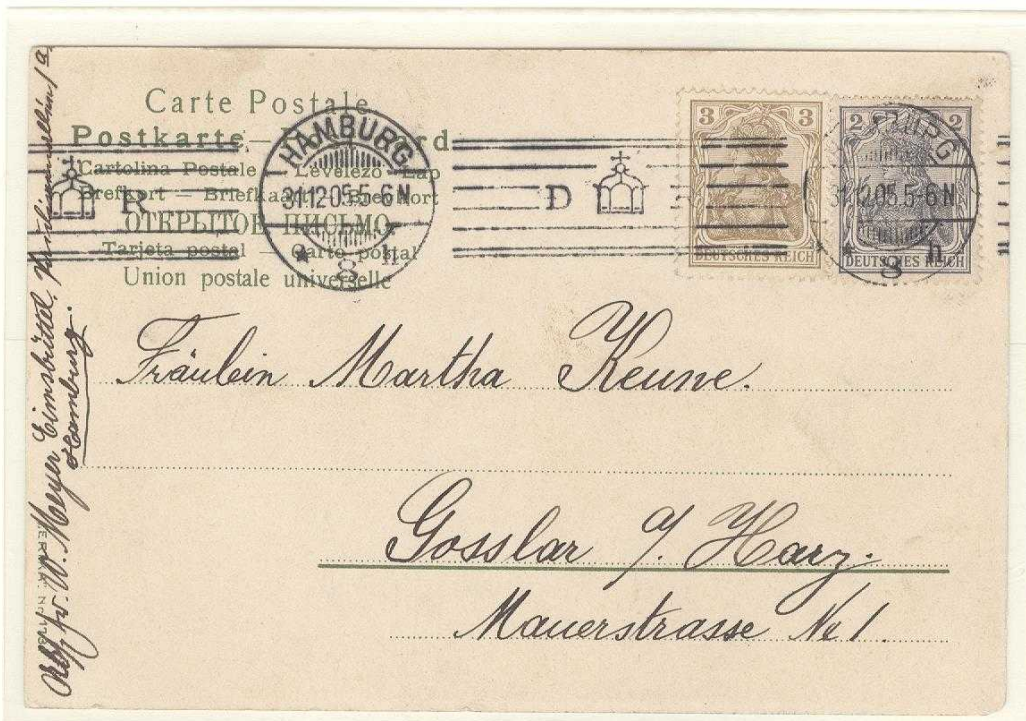 Carte Postale
Postkarte
Cartolina Postale Levelezö Lap
Brefkort – Briefkaart
ОТКРЫТОЕ ПИСЬМО
Tarjeta postal – Carto postal
Union postale universelle
HAMBURG
31.12.05.5-6N
* 8 h
R
D
3 3
DEUTSCHES REICH
2 2
DEUTSCHES REICH
HAMBURG
31.12.05.5-6N
* 8 h
Fräulein Martha Keune.
Gosslar a/ Harz.
Mauerstrasse No 1.
W. Meyer Eimsbüttel,
Hamburg.